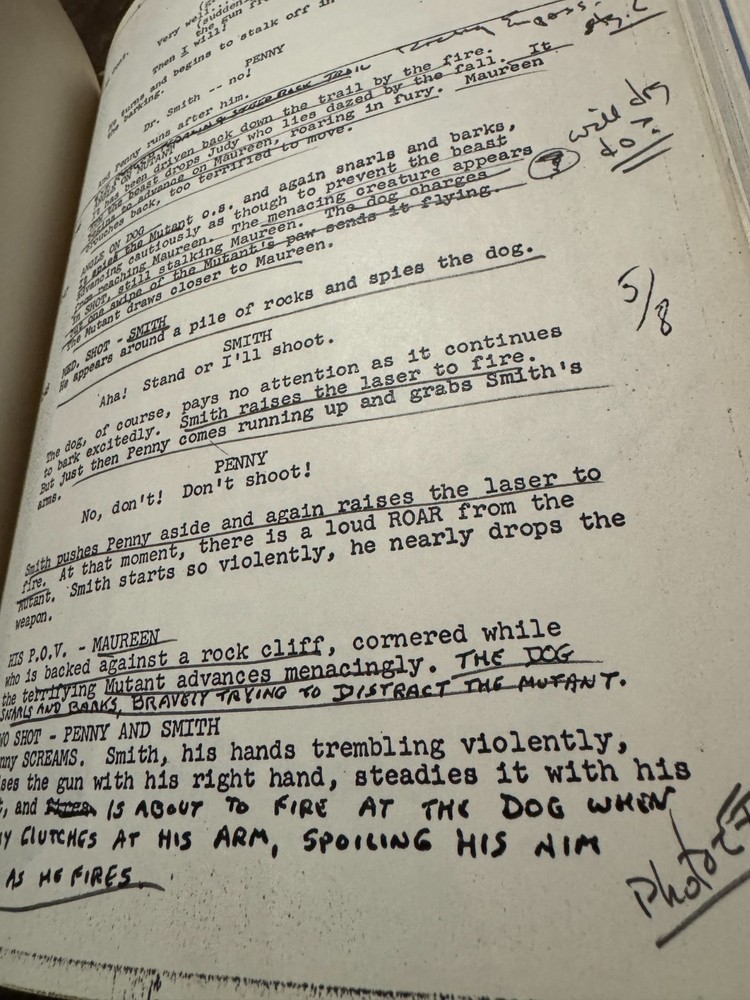 Very well...
(sudden
the gun
Then I will!
He turns and begins to stalk off in
the barking.
PENNY
Dr. Smith -- no!
And Penny runs after him.
ANGLE ON MUTANT
It had been driven back down the trail by the fire.
the beast drops Judy who lies dazed by the fall. It
begins to advance on Maureen, roaring in fury. Maureen
crouches back, too terrified to move.
will dog
do ?
ANGLE ON DOG
It spies the Mutant o.s. and again snarls and barks,
advancing cautiously as though to prevent the beast
from reaching Maureen. The menacing creature appears
in SHOT, still stalking Maureen. The dog charges
but one swipe of the Mutant's paw sends it flying.
The Mutant draws closer to Maureen.
MED. SHOT - SMITH
He appears around a pile of rocks and spies the dog.
5/8
SMITH
Aha! Stand or I'll shoot.
The dog, of course, pays no attention as it continues
to bark excitedly. Smith raises the laser to fire.
But just then Penny comes running up and grabs Smith's
arms.
PENNY
No, don't! Don't shoot!
Smith pushes Penny aside and again raises the laser to
fire. At that moment, there is a loud ROAR from the
Mutant. Smith starts so violently, he nearly drops the
weapon.
HIS P.O.V. - MAUREEN
who is backed against a rock cliff, cornered while
the terrifying Mutant advances menacingly. THE DOG
SNARLS AND BARKS, BRAVELY TRYING TO DISTRACT THE MUTANT.
WO SHOT - PENNY AND SMITH
nny SCREAMS. Smith, his hands trembling violently,
ses the gun with his right hand, steadies it with his
t, and fires IS ABOUT TO FIRE AT THE DOG WHEN
NY CLUTCHES AT HIS ARM, SPOILING HIS AIM
AS HE FIRES.